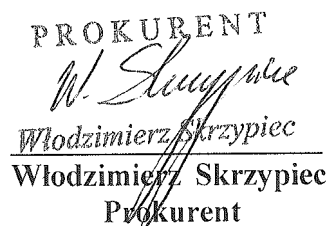 PROKURENT
W. Skrzypiec
Włodzimierz Skrzypiec
Włodzimierz Skrzypiec
Prokurent